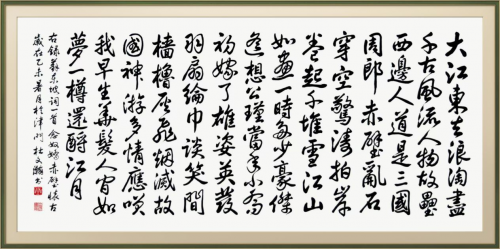 大江東去浪淘盡
千古風流人物故壘
西邊人道是三國
周郎赤壁亂石
穿空驚濤拍岸
卷起千堆雪江山
如畫一時多少豪傑
遙想公瑾當年小喬
初嫁了雄姿英發
羽扇綸巾談笑間
檣櫓灰飛煙滅故
國神游多情應笑
我早生華髮人間如
夢一樽還酹江月
右錄蘇東坡詞一首念奴嬌赤壁懷古
歲在乙未暑月於津門杜文書